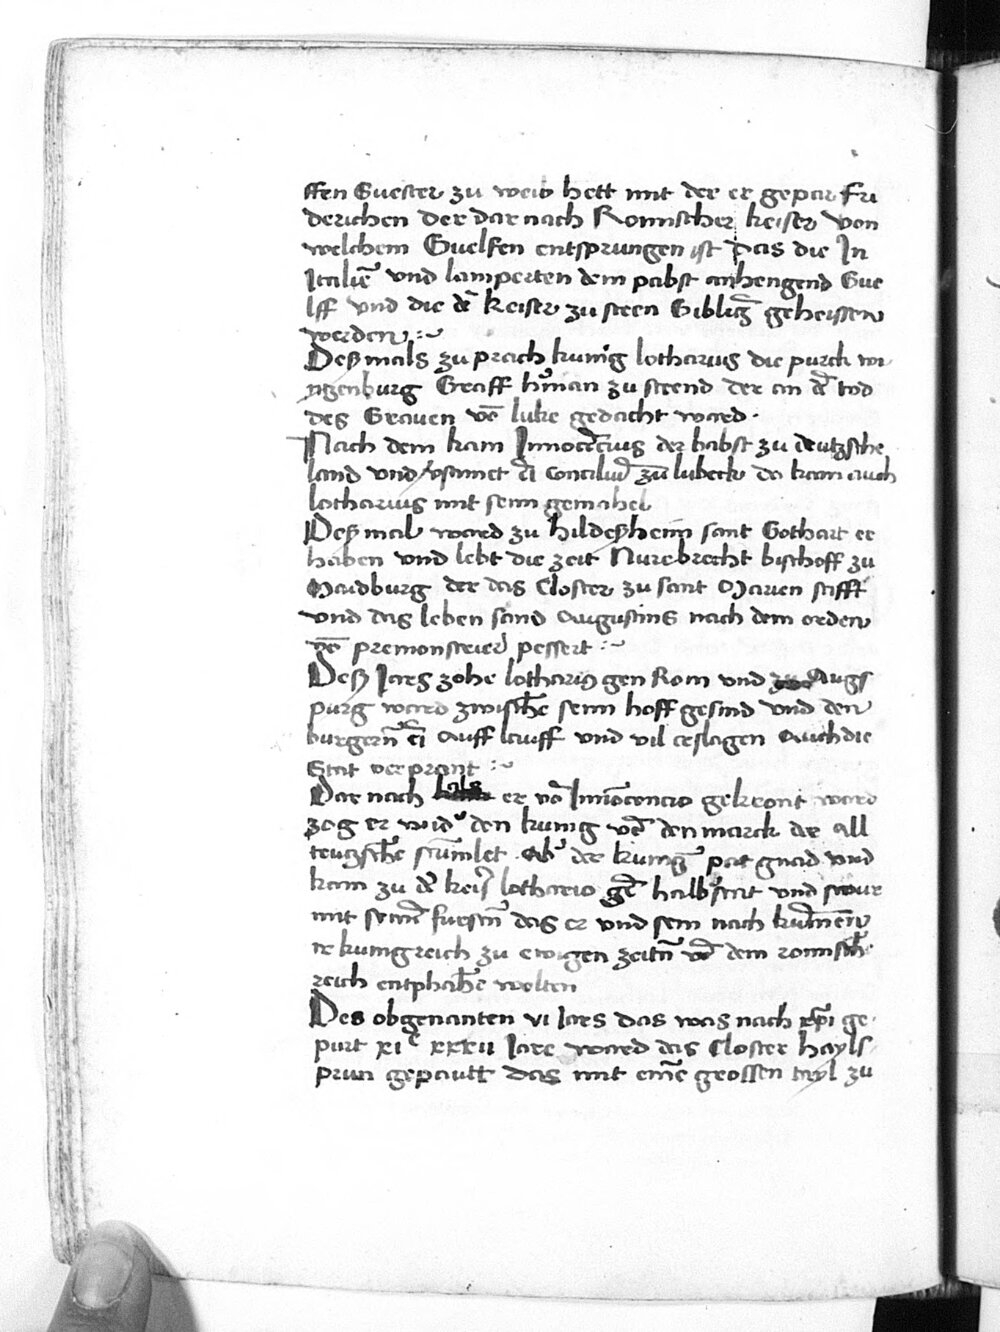 ffen Swester zu weib hett mit der er gepar Fri
derichen der dar nach Romischer keiser von
welchem Guelfen entsprungen ist das die In
Italiē vnd lamperten dem pabst anhengend Gue
lff vnd die dē keiser zu steen Gibling geheissen
werden
Deß mals zu prach kunig lotharius die purck wi
ntzenburg Graff hman zu steend der an dē tod
des Graven vō luke gedacht ward.
Nach dem kam Innocēcius der babst zu deutzsche
land vnd samet ei Conciliū zu lubeck do kam auch
lotharius mit seim gemahel
Deß mal ward zu hildeßheim sant Gothart er
haben vnd lebt die zeit Nurebrecht bischoff zu
Maidburg der das Closter zu sant Marien stifft
vnd das leben sand Augustins nach dem orden
vō premonstreier pessert
Deß Jares zohe lotharius gen Rom vnd Augs
purg ward zwischē seim hoffgesind vnd den
burgern ei Aufflauff vnd vil erslagen Auch die
Stat verprant
Dar nach er vō Innocencio gekront ward
zog er wid den kunig vō denmarck der all
teutzschē Ab der kunig pat gnad vnd
kam zu dē keis lothario gē halbstat vnd swur
mit seinē fursten das er vnd sein nach kumen
re kunigreich zu ewigen zeitn vō dem romischē
reich entphahē wolten
Des obgenanten vi Jars das was nach xpi ge
purt xiᶜ xxxii Jare ward das Closter hayls
prun gepautt das mit eimē grossen teyl zu